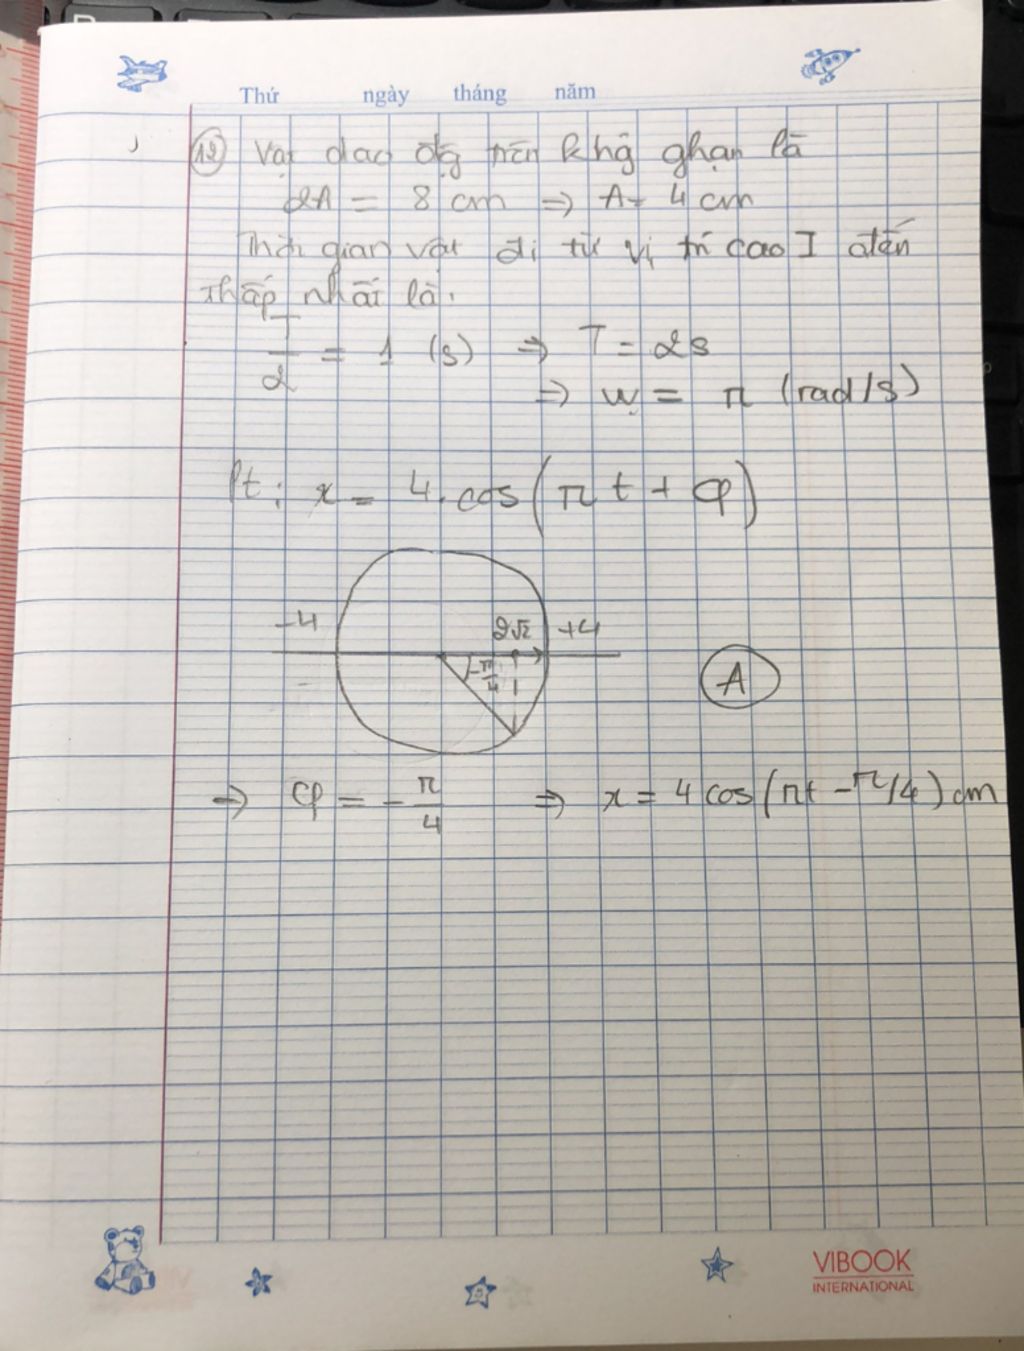 Thứ ngày tháng năm
12 Vật dao độg trên khg ghạn là
2A = 8 cm ⇒ A = 4 cm
Thời gian vật đi từ vị trí cao I đến
thấp nhất là.
T/2 = 1 (s) ⇒ T = 2s
⇒ w = π (rad/s)
Pt: x = 4.cos(πt + φ)
-4 2√2 +4
-π/4
A
⇒ φ = -π/4 ⇒ x = 4cos(πt - π/4) cm
VIBOOK
INTERNATIONAL